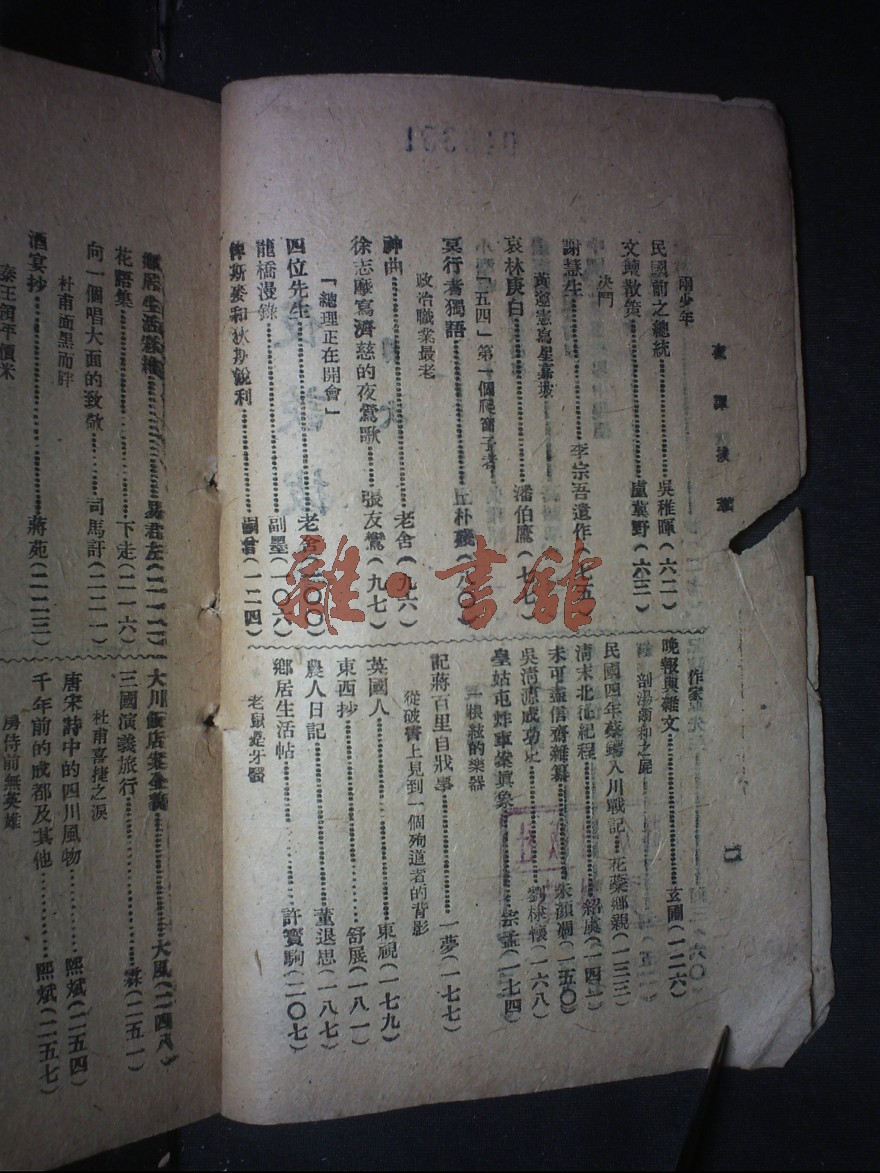 夜譚拔萃
兩少年
民國前之總統……吳稚暉(六二)
文壇散策……盧冀野(六三)
決鬥
謝慧生……李宗吾遺作(七五)
黃遵憲寫星嘉坡
哀林庚白……潘伯鷹(七七)
「五四」第一個爬窗子者
冥行者獨語……(八〇)
政治職業最老
神曲……老舍(九六)
徐志摩寫濟慈的夜鶯歌……張友鸞(九七)
「總理正在開會」
四位先生……老舍(一〇〇)
龍橋漫錄……副墨(一〇六)
俾斯麥和狄斯銳利……(一二四)
作家
晚報與雜文……玄圃(一二六)
剖湯衛和之屍
民國四年蔡鍔入川戰記……花蘂鄉親(一三三)
清末北征紀程……紹虞(一四七)
未可盡信齋雜纂……朱顏凋(一五〇)
吳清源成功史……劉棣懷(一六八)
皇姑屯炸車案真象……宗孟(一七四)
一根絃的樂器
記蔣百里自戕事……一夢(一七七)
從破書上見到一個殉道者的背影
英國人……東視(一七九)
東西抄……舒展(一八一)
農人日記……董退思(一八七)
鄉居生活帖……許寶駒(二〇七)
老鼠是牙醫
花語集……下走(二一六)
向一個唱大面的致敬……司馬訏(二二一)
杜甫面黑而胖
酒宴抄……蔣苑(二二三)
秦王
平價米
大川飯店案全貌……大風(二四八)
三國演義旅行……霖(二五一)
杜甫喜捷之淚
唐宋詩中的四川風物……熙斌(二五四)
千年前的成都及其他……熙斌(二五七)
房侍前無英雄
雜·書館